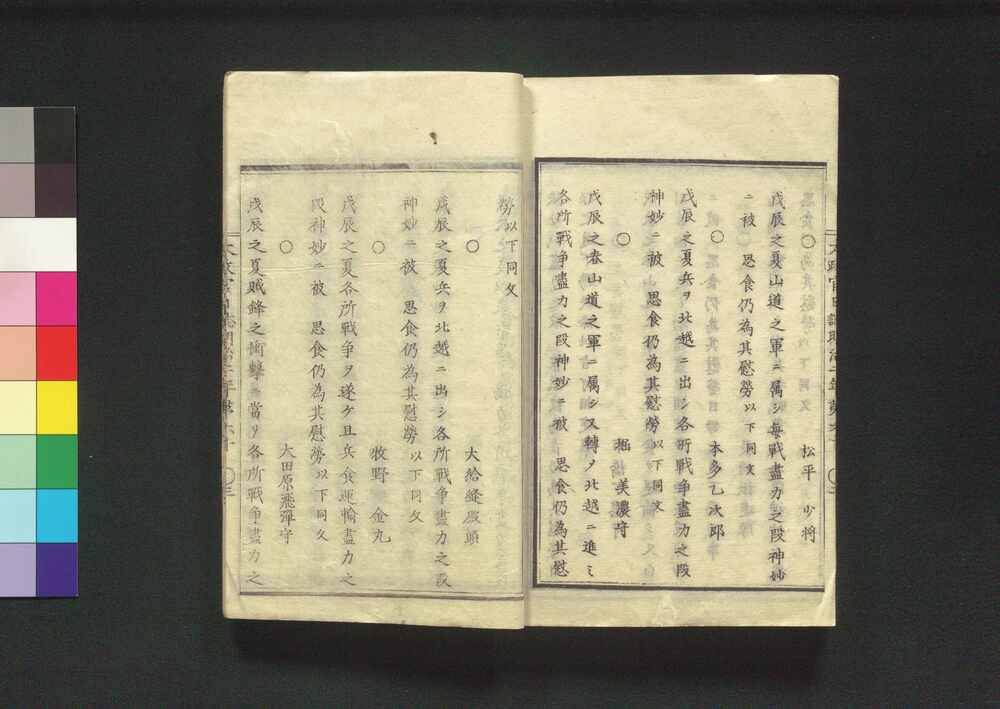 〇 松平少将
戊辰之夏山道之軍ニ属シ毎戦盡力之段神妙
ニ被 思食仍為其慰勞以下同文
〇 本多乙次郎
戊辰之夏兵ヲ北越ニ出シ各所戦争盡力之段
神妙ニ被 思食仍為其慰勞以下同文
〇 堀 美濃守
戊辰之春山道之軍ニ属シ又轉メ北越ニ進ミ
各所戦争盡力之段神妙ニ被 思食仍為其慰
勞以下同文
〇 大給縫殿頭
戊辰之夏兵ヲ北越ニ出シ各所戦争盡力之段
神妙ニ被 思食仍為其慰勞以下同文
〇 牧野金丸
戊辰之夏各所戦争ヲ遂ケ且兵食運輸盡力之
段神妙ニ被 思食仍為其慰勞以下同文
〇 大田原飛彈守
戊辰之夏賊鋒之衝撃ニ當リ各所戦争盡力之